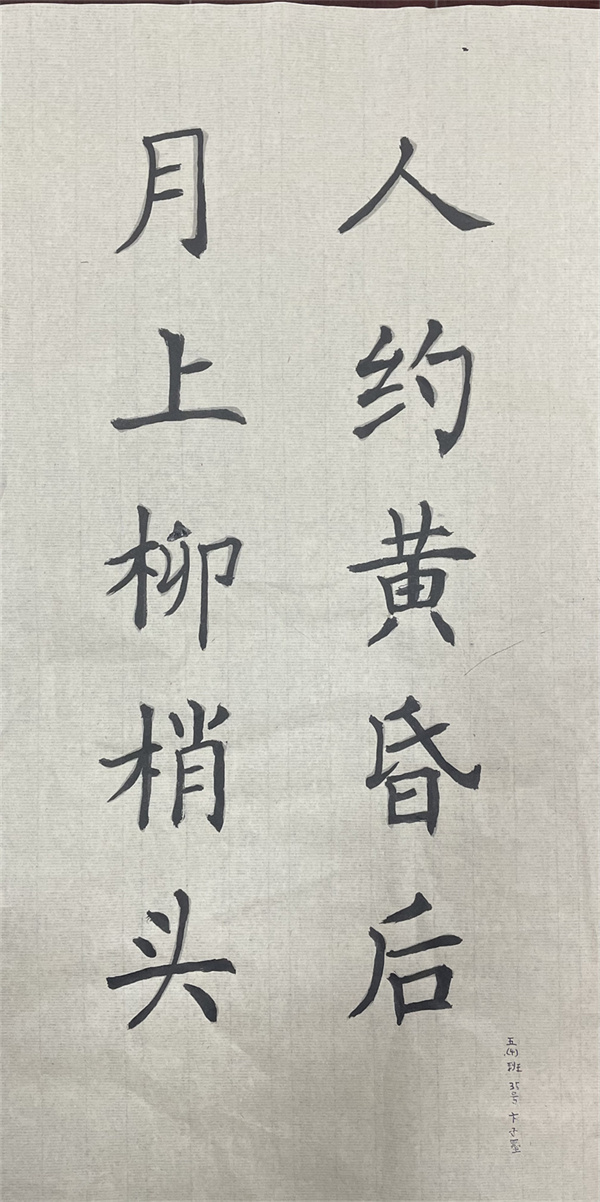 月上柳梢头
人约黄昏后
五(4)班 35号 卞子